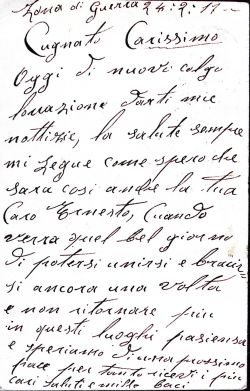 Zona di Guerra 24:2:17
Cugnato Carissimo
Oggi di nuovi colgo
l'ocazione darti mie
nottizie, la salute sempre
mi segue come spero che
sara cosi anche la tua
Caro Ernesto, Quando
verra quel bel giorno
di potersi unirsi e braciar=
si ancora una volta
e non ritornare piu
in questi luoghi pasiensa
e speriamo di una prossima
pace per tanto ricevi i piu
cari saluti e mille baci